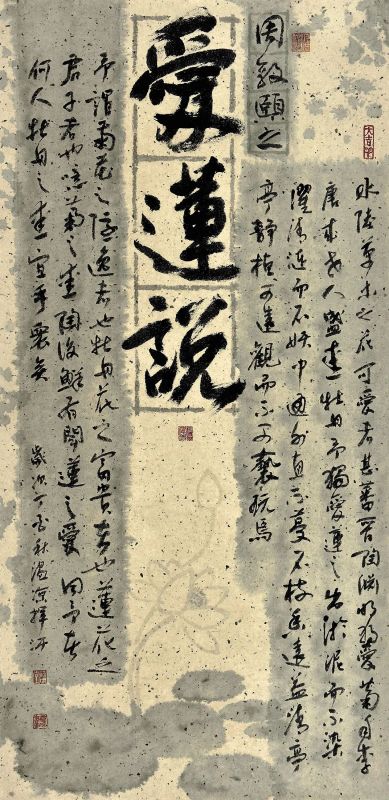 周敦頤之
愛蓮說
水陸草木之花可愛者甚蕃晉陶淵明獨愛菊自李
唐来世人盛愛牡丹予獨愛蓮之出淤泥而不染
濯清漣而不妖中通外直不蔓不枝香遠益清亭
亭静植可遠觀而不可褻玩焉
予謂菊花之隱逸者也牡丹花之富貴者也蓮花之
君子者也噫菊之愛陶後鮮有聞蓮之愛同予者
何人牡丹之愛宜乎衆矣
歲次丁酉秋